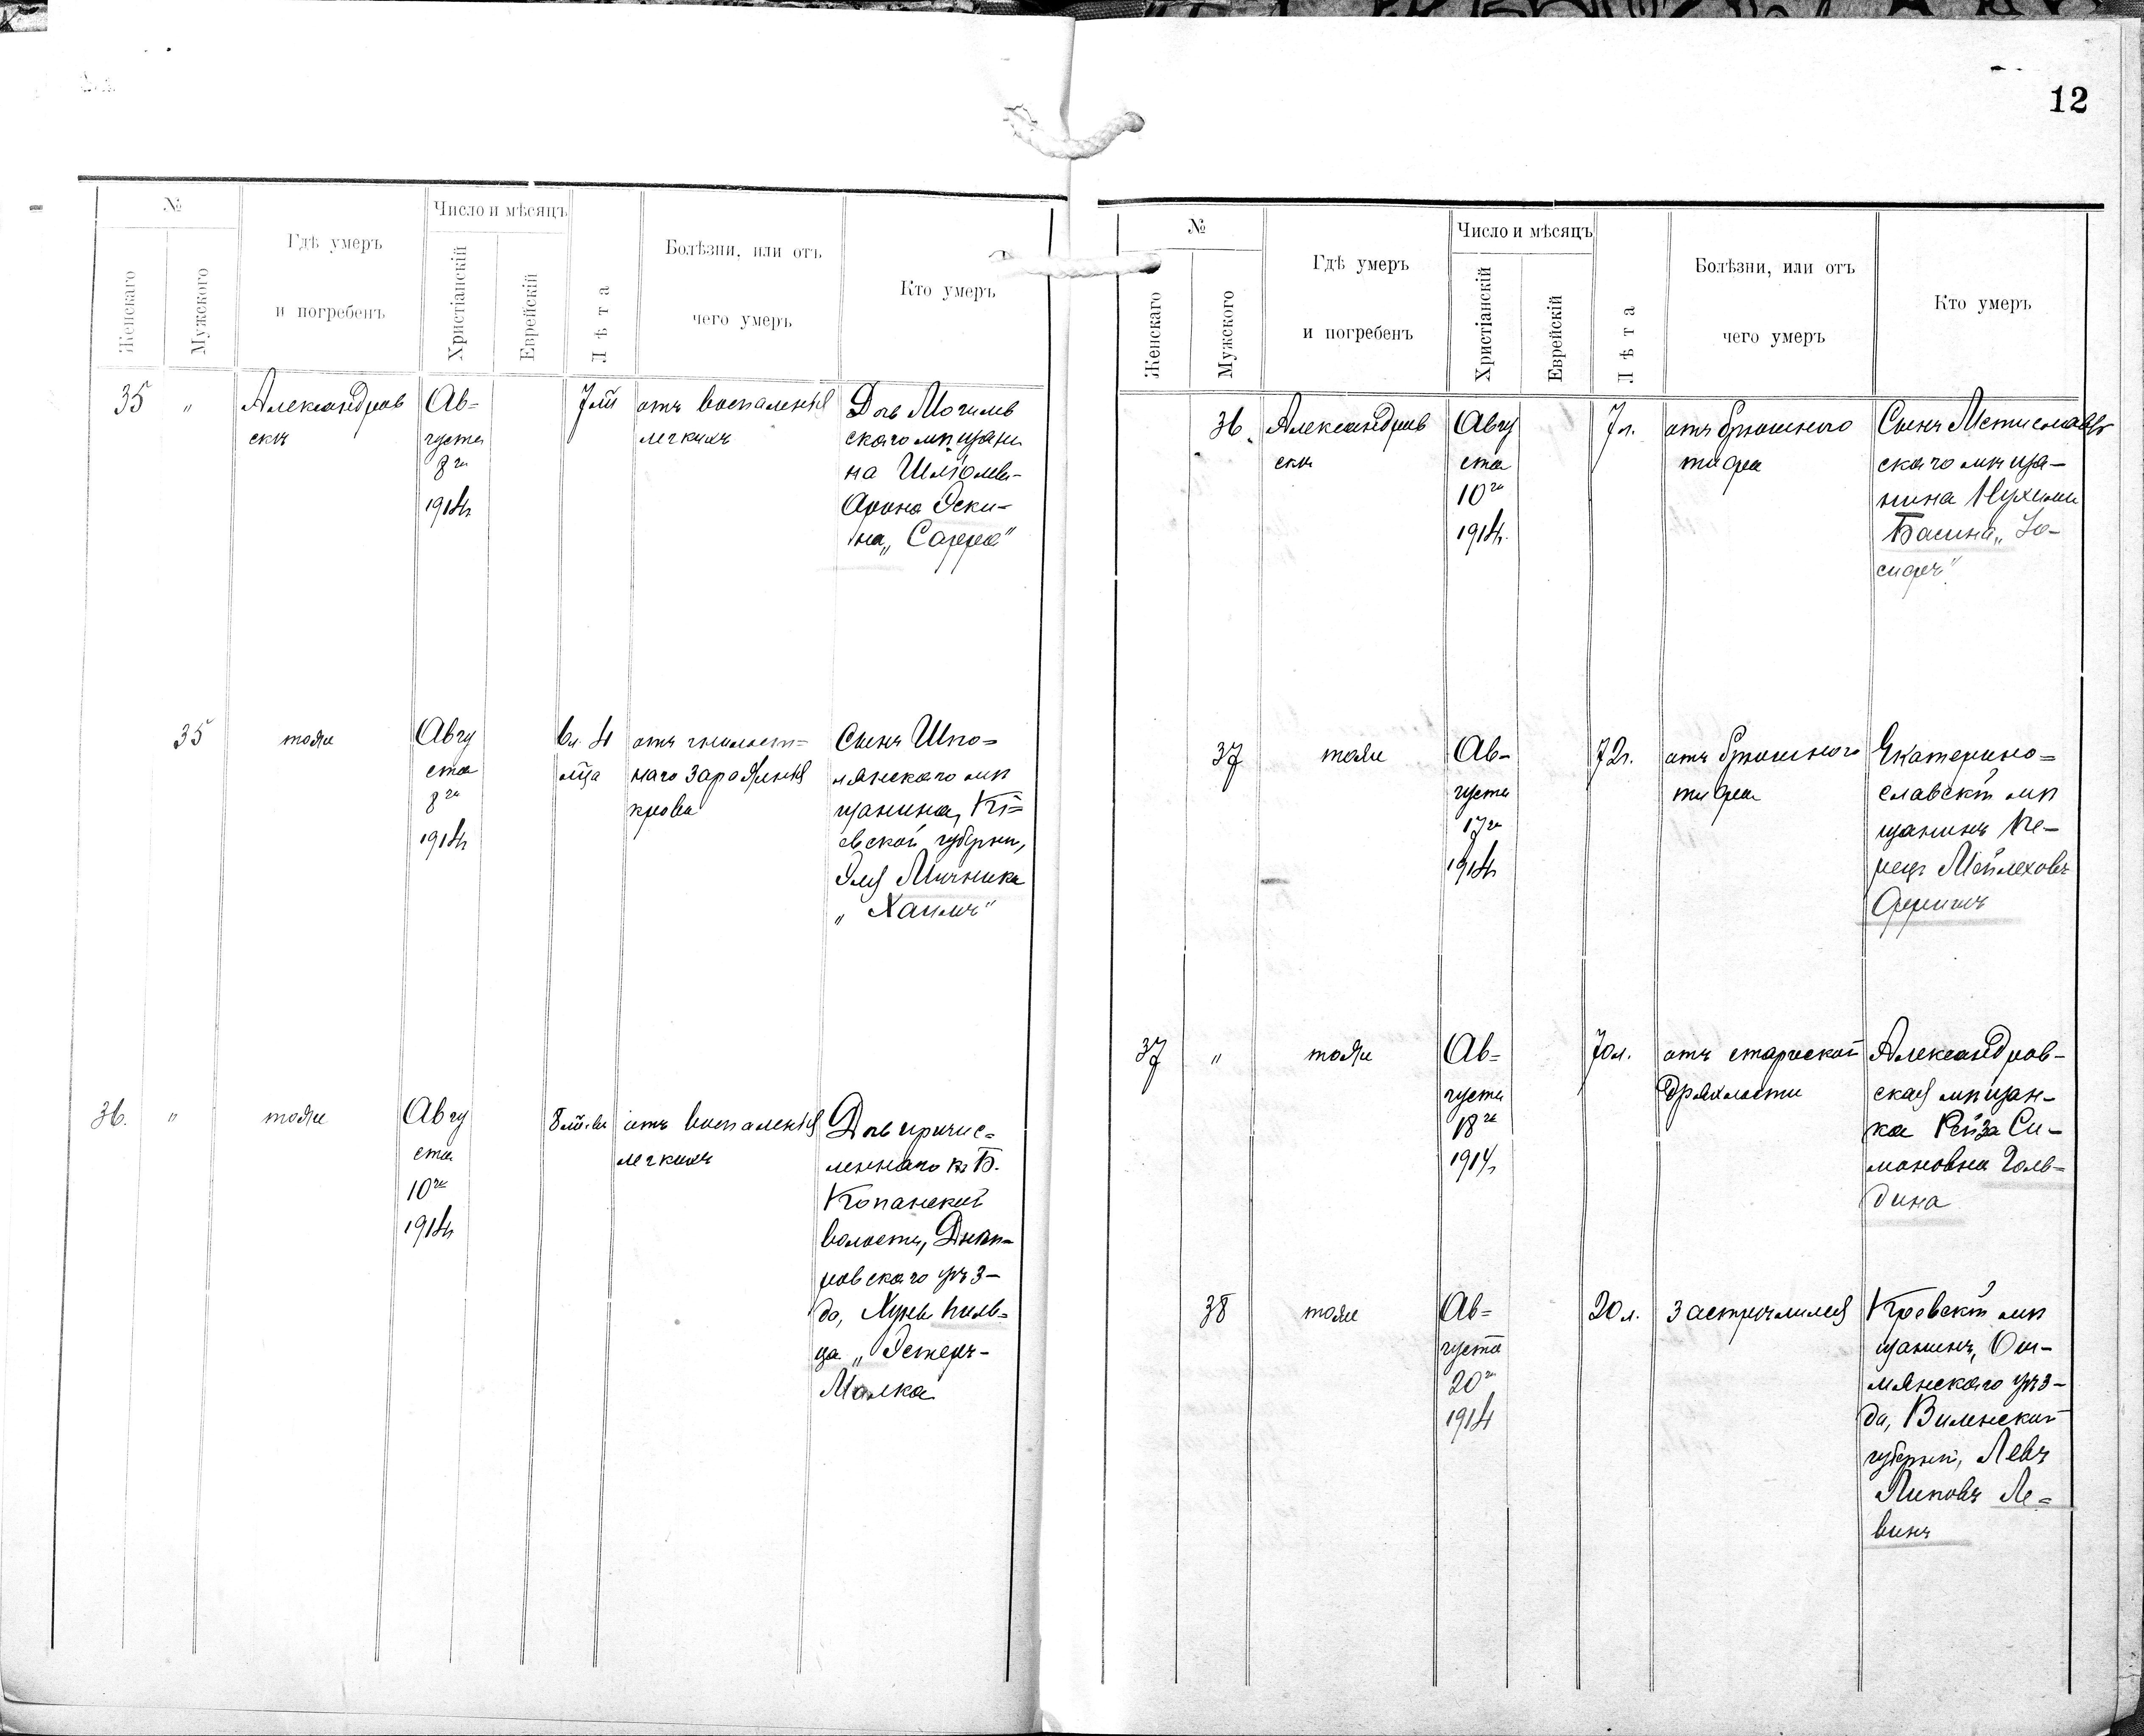 12
№
Число и мѣсяцъ
Гдѣ умеръ
и погребенъ
Женскаго
Мужского
Христіанскій
Еврейскій
Лѣта
Болѣзни, или отъ
чего умеръ
Кто умеръ
35 " Александров
скъ
Ав=
густа
8го
1914г
7 м
отъ воспаленія
легкихъ
Дочь Могилев
скаго мѣщани
на Шлiомы-
Арона Эски-
на „Сарра"
35 тоже
Авгу
ста
8го
1914г
6л. 4
мца
отъ гнилост=
наго зараженія
крови
Сынъ Шпо=
лянскаго мѣ
щанина, Кі=
евской губерніи,
Эля Мичника
„Хаимъ"
36. " тоже
Авгу
ста
10го
1914г
8
отъ воспаленія
легкихъ
Дочь причис=
леннаго къ Б.
Копанской
волости, Днѣп-
ровскаго уѣз-
да,
„Эстеръ-
Малка
№
Число и мѣсяцъ
Гдѣ умеръ
и погребенъ
Женскаго
Мужского
Христіанскій
Еврейскій
Лѣта
Болѣзни, или отъ
чего умеръ
Кто умеръ
36. Александров
скъ
Авгу
ста
10го
1914г.
7л.
отъ брюшного
тифа
Сынъ Мстиславль
скаго мѣща-
нина Нухима
Басина „Іо-
сифъ"
37 тоже
Ав-
густа
17го
1914г
72г.
отъ брюшного
тифа
Екатерино=
славскій мѣ
щанинъ Пе-
рецъ Мейлеховъ
37 " тоже
Ав=
густа
18го
1914г
70л.
отъ старческой
дряхлости
Александров-
ская мѣщан-
ка Рейза Си-
моновна Голь=
дина
38 тоже
Ав=
густа
20го
1914
20л.
застрѣлился
Кревскій мѣ
щанинъ, Ош-
мянскаго уѣз-
да, Виленской
губерніи, Левъ
Липовъ Ле=
винъ